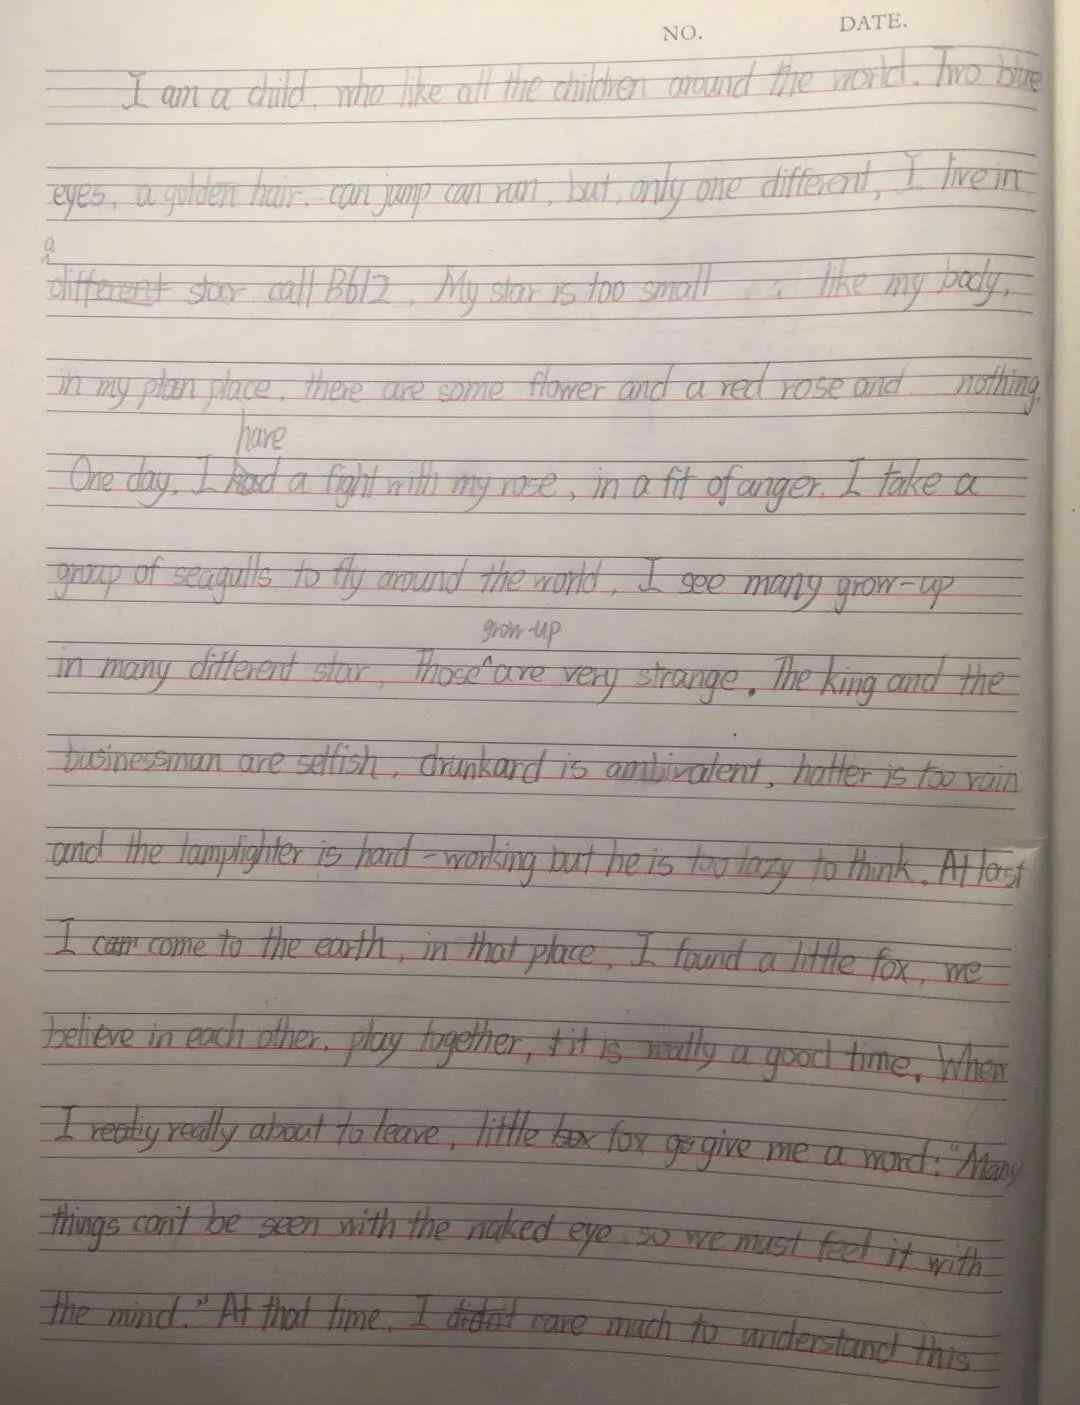 NO. DATE.
I am a child. who like all the children around the world. Two blue
eyes, a golden hair. can jump can run, but, only one different, I live in
a
different star call B612. My star is too small like my body,
in my plan place. there are some flower and a red rose and nothing.
have
One day, I had a fight with my rose, in a fit of anger. I take a
group of seagulls to fly around the world, I see many grow-up
grow-up
in many different star, Those are very strange. The king and the
businessman are selfish, drunkard is ambivalent, hatter is too vain
and the lamplighter is hard-working but he is too lazy to think. At last
I cam come to the earth, in that place, I found a little fox, we
believe in each other. play together, t it is really a good time. When
I realiy really about to leave, little box fox go give me a word: "Many
things can't be seen with the naked eye so we must feel it with
the mind." At that time, I didn't care much to understand this